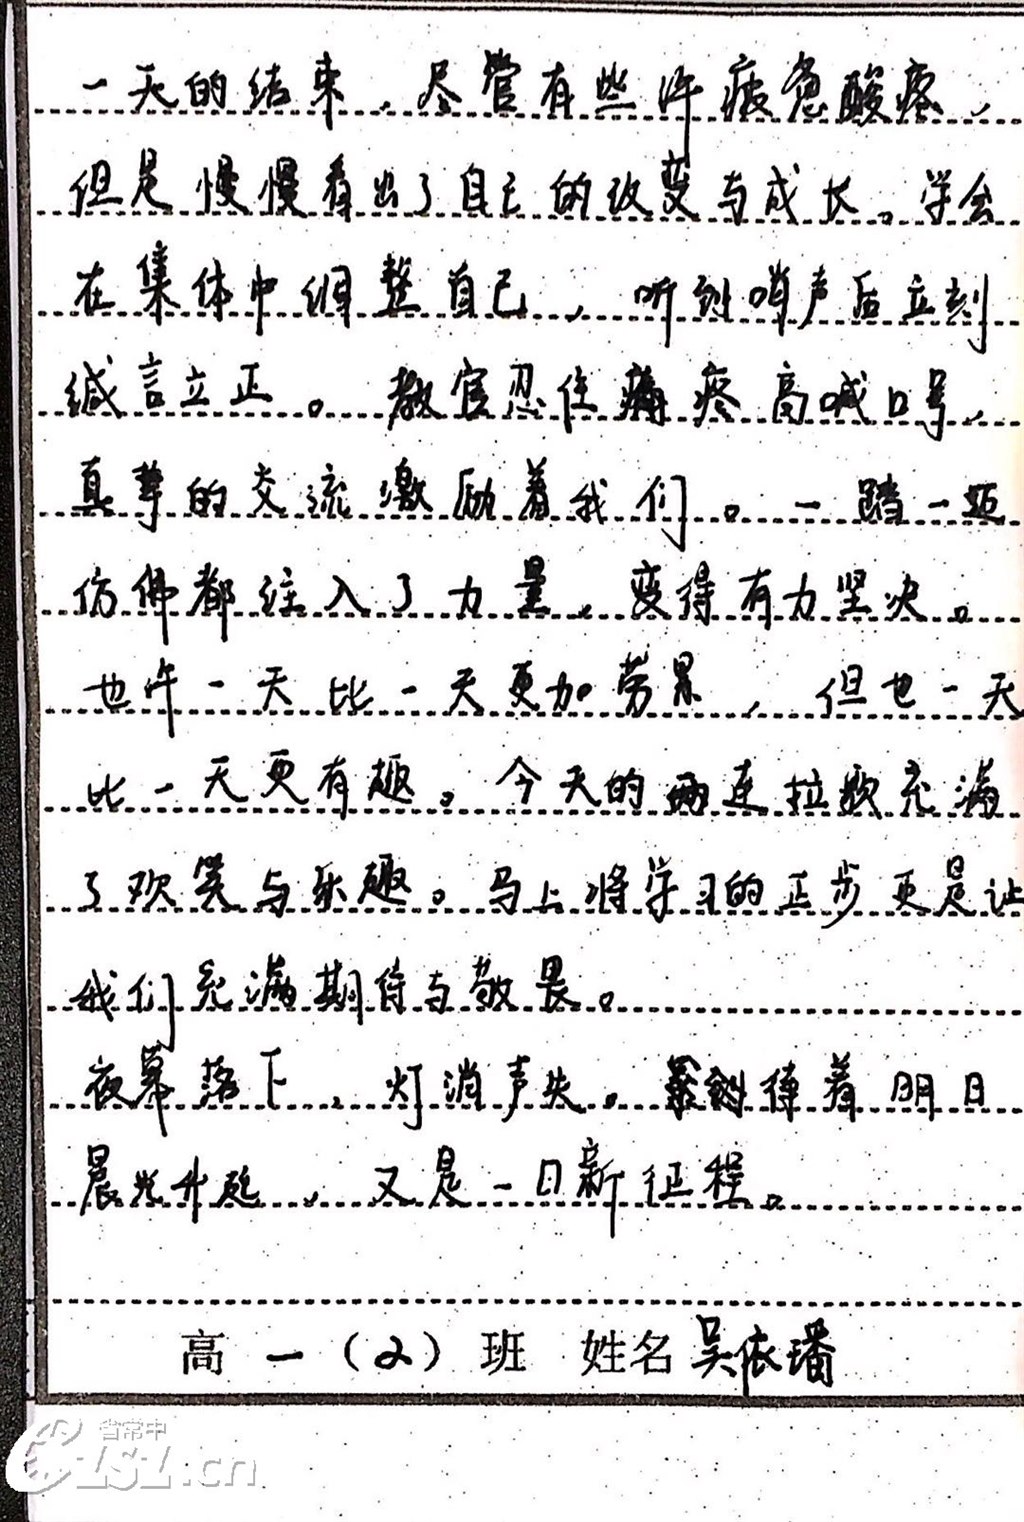 一天的结束，尽管有些许疲惫酸疼，
但是慢慢看出了自己的改变与成长。学会
在集体中调整自己，听到哨声后立刻
缄言立正。教官忍住痛疼高喊口号，
真挚的交流激励着我们。一踏一迈
仿佛都注入了力量，变得有力坚决。
也许一天比一天更加劳累，但也一天
比一天更有趣。今天的两连拉歌充满
了欢笑与乐趣。马上将学习的正步更是让
我们充满期待与敬畏。
夜幕落下，灯消声失。待着明日
晨光升起，又是一日新征程。
高一（2）班 姓名 吴依璠
省常中
CZSZ.cn